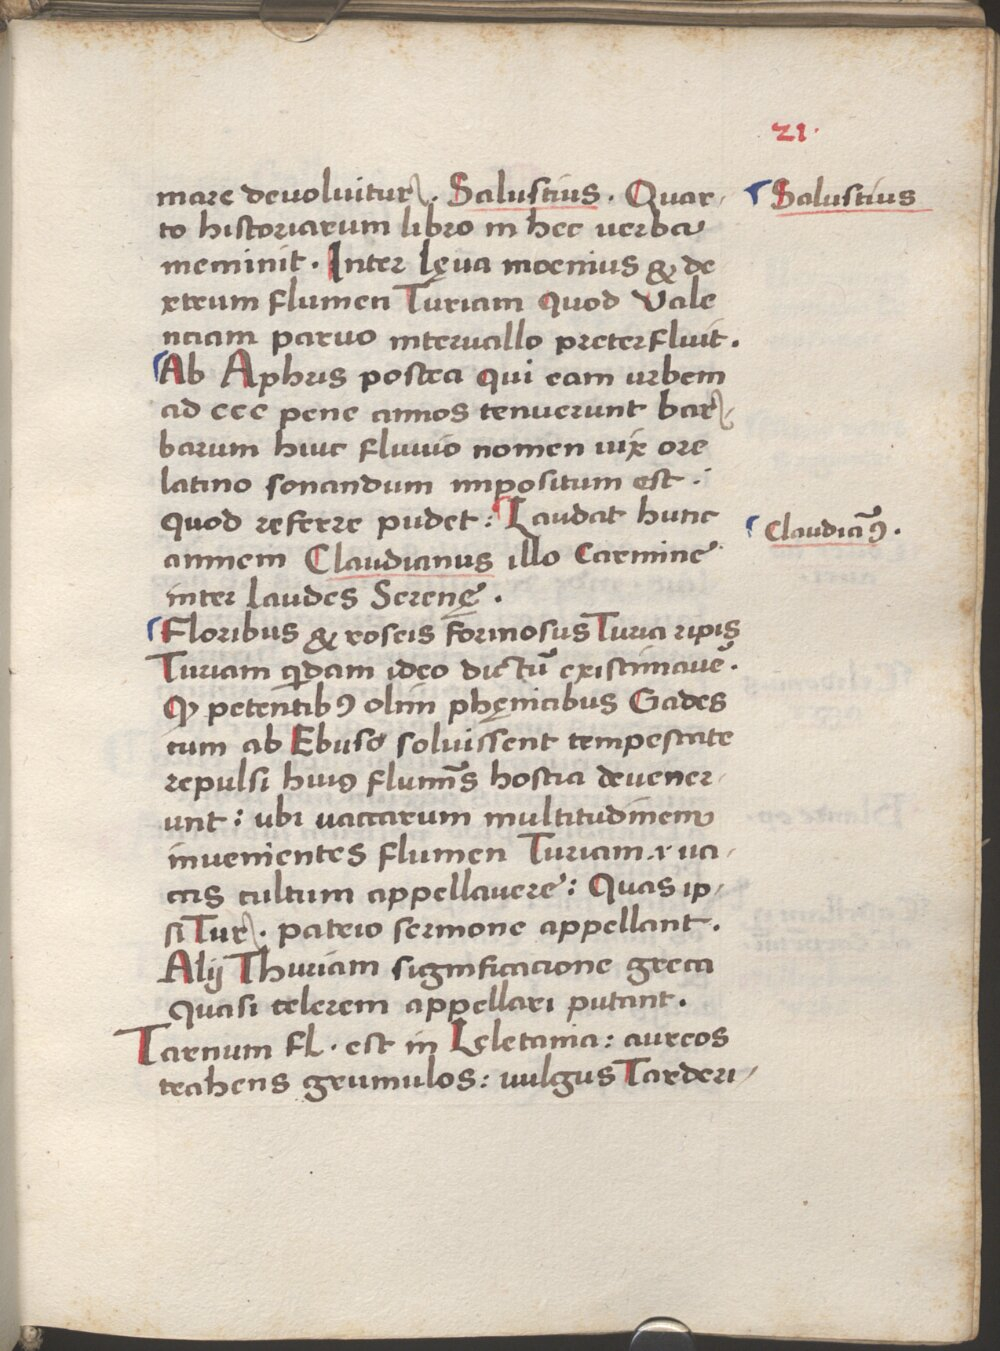 21.
mare devoluitur. Salustius. Quar-
Salustius
to historiarum libro in hec uerba
meminit. Inter lęua moenius & de
xtrum flumen Turiam quod Vale
nciam paruo interuallo preterfluit.
Ab Aphris postea qui eam urbem
ad ccc pene annos tenuerunt bar-
barum huic fluuio nomen uix ore
latino sonandum impositum est.
quod referre pudet: Laudat hunc
Claudiaꝰ.
amnem Claudianus illo Carmine
inter laudes Serenę.
Floribus & roseis formosus Turia ripis
Turiam qdam ideo dictū existimauē.
Qp petentibꝰ olim phęnicibus Gades
cum ab Ebuso soluissent tempestate
repulsi huiꝰ flumīs hostia devener-
unt: ubi uaccarum multitudinem
invenientes flumen Turiam. i ua-
ccis cultum appellavere: Quas ip-
si Tur. patrio sermone appellant.
Alij Thuriam significacione greca
Quasi celerem appellari putant.
Tarnum fl. est in Lęletania: aureos
trahens grumulos: uulgus Tarderi-